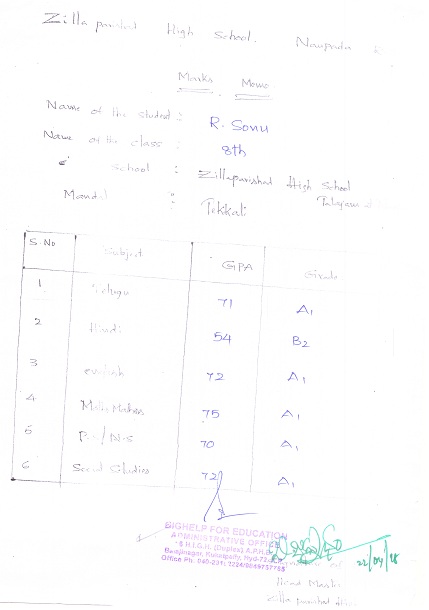 Zilla parishad High School. Naupada
Marks Memo
Name of the student : R. Sonu
Name of the class : 8th
School : Zillaparishad High School
Mandal : Tekkali
S.No Subject GPA Grade
1 Telugu 71 A1
2 Hindi 54 B2
3 English 72 A1
4 75 A1
5 70 A1
6 Social Studies 72 A1
BIGHELP FOR EDUCATION
ADMINISTRATIVE OFFICE
Office Ph: 040-231
22/04/18
Head
Zilla parishad